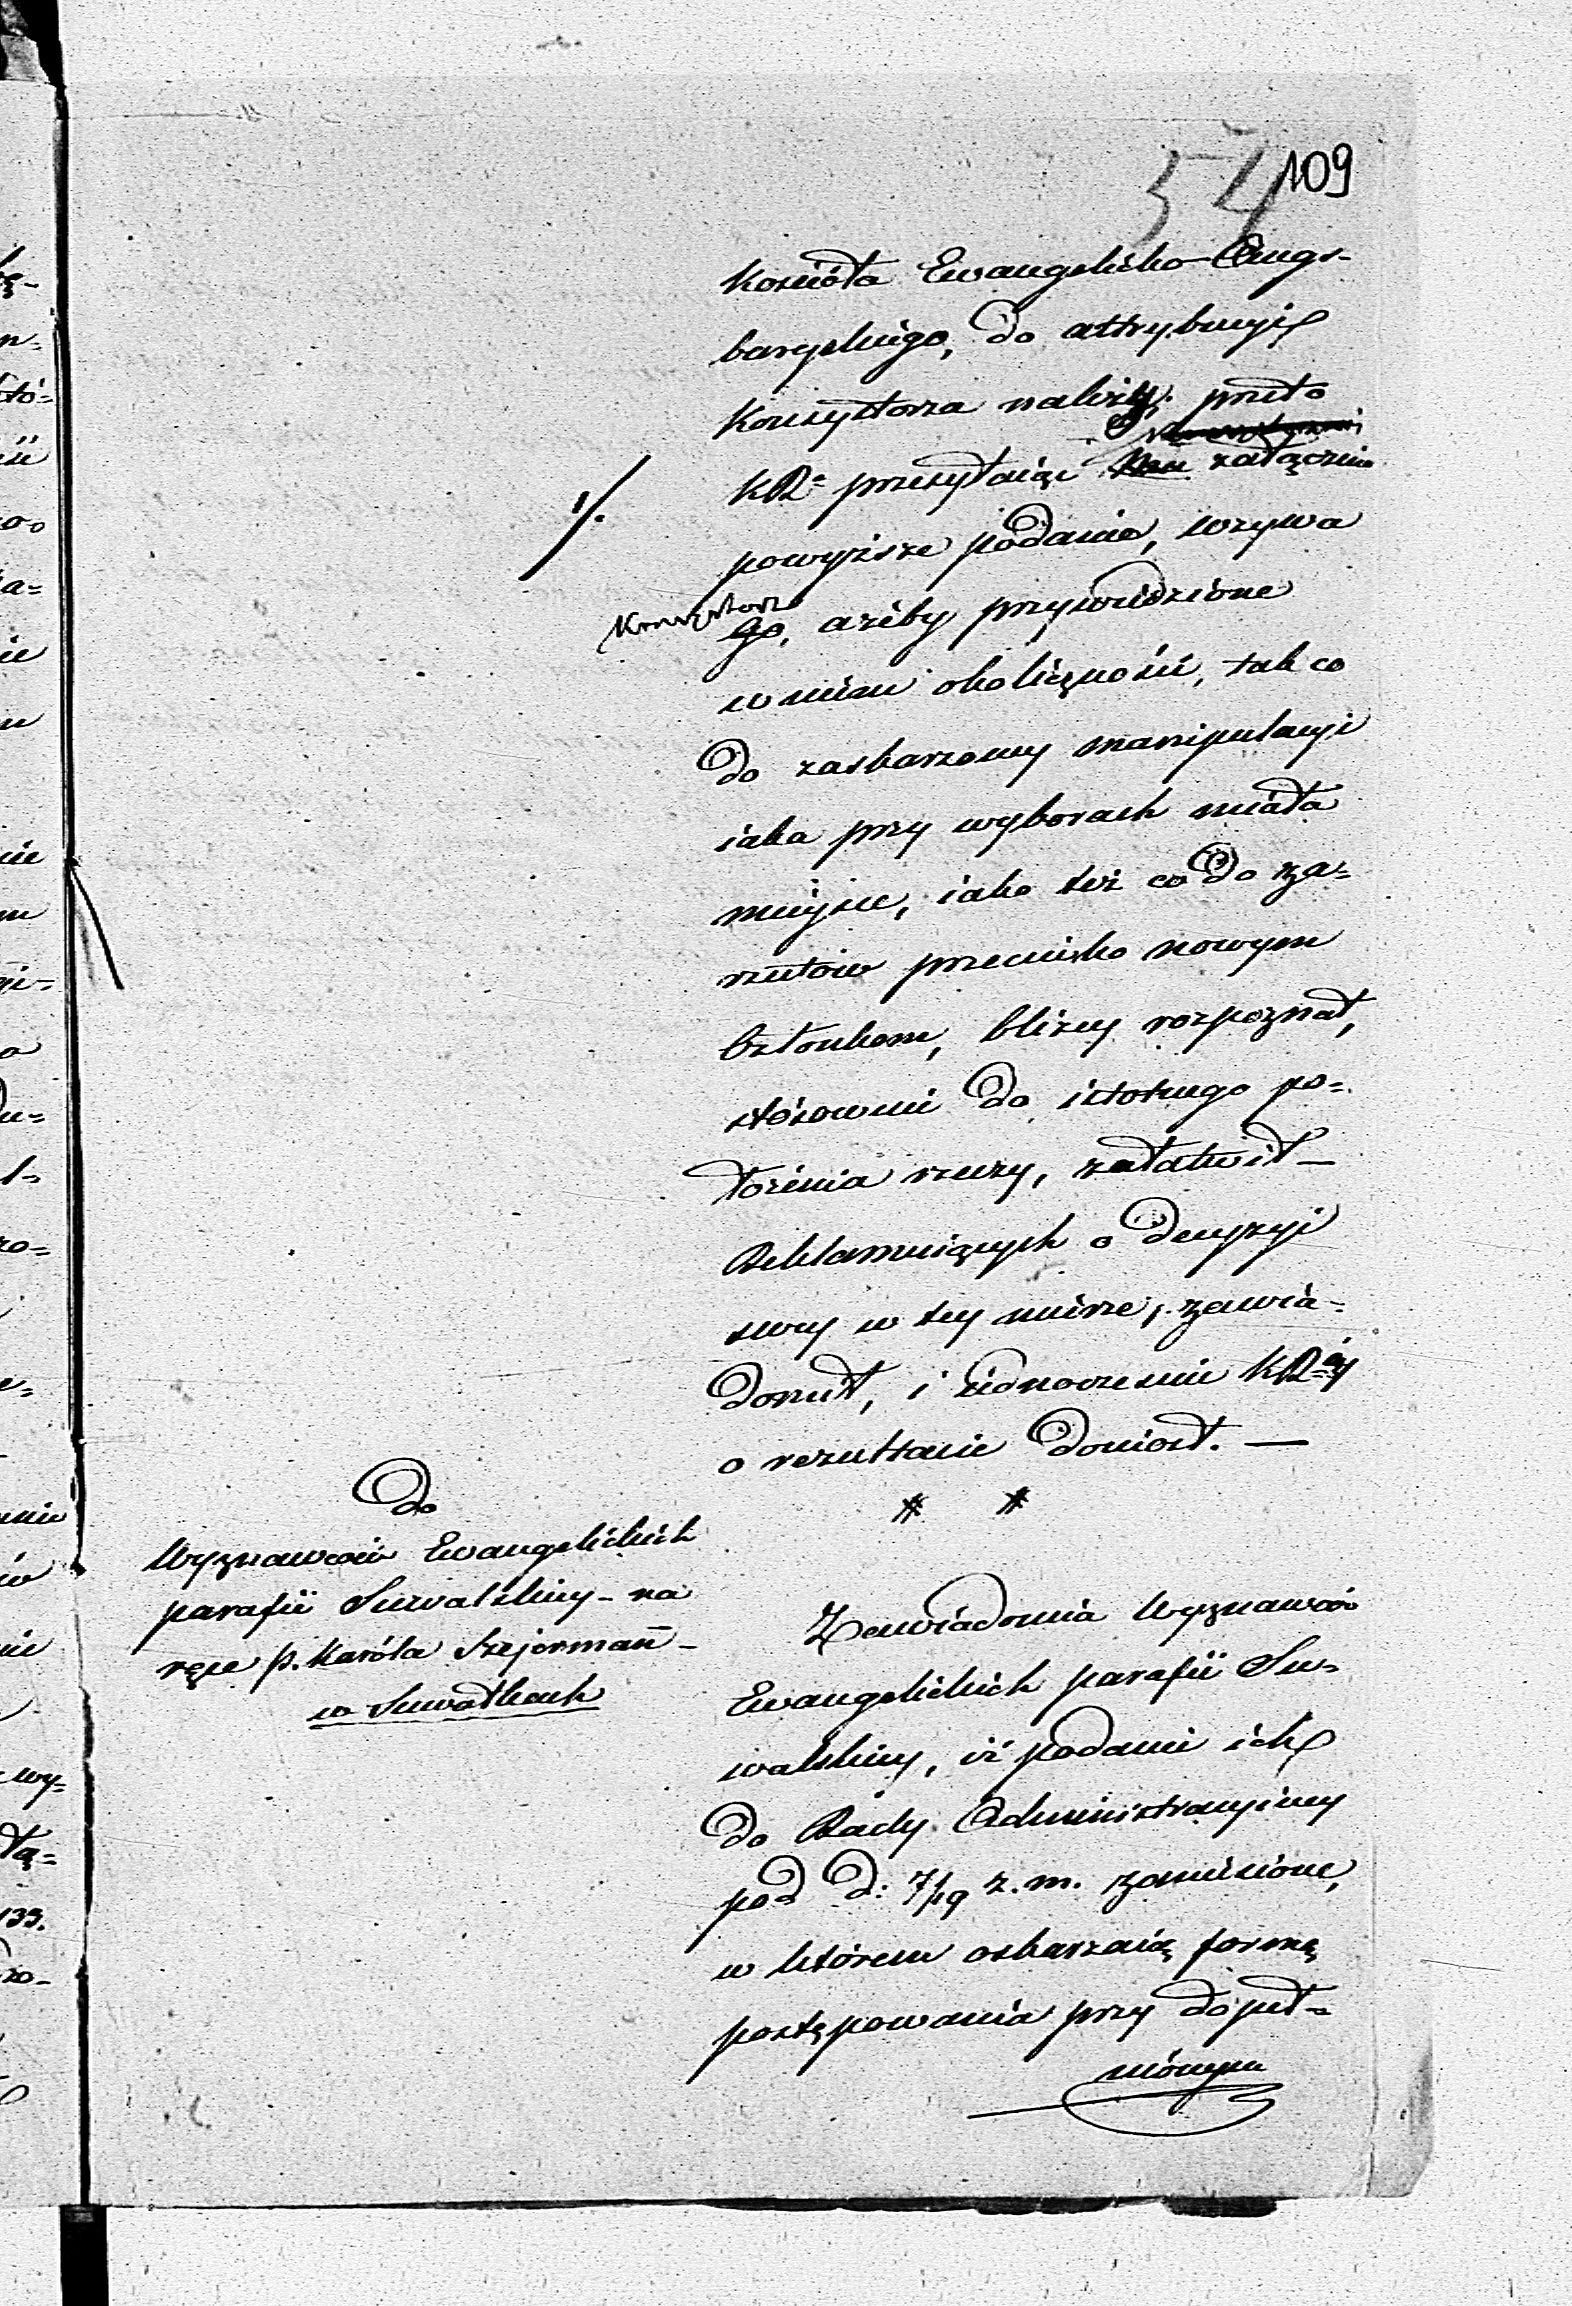 54 109
Kościoła Ewangelicko-Augs-
burgskiego, do attrybucyi
Konsystorza należy, przeto
KR. przesyłaiąc załącznie
1/.
powyższe podanie, wzywa
Konsystorz
Go, ażeby przywiedzione
w niem okoliczności, tak co
do zaskarżoney manipulacyi
iaka przy wyborach miała
mieysce, iako też co do za-
rzutów przeciwko nowym
Członkom, bliżey rozpoznał,
stósownie do istotnego po-
łożenia rzeczy, załatwił —
Reklamuiących o decyzyi
swey w tey mierze, zawia-
domił, i iednocześnie KRay
o rezultacie doniosł. —
Do
Wyznawców Ewangelickich
parafii Suwalskiey - na
ręce p. Karóla Szejerman -
w Suwałkach
Zawiadomia Wyznawców
Ewangelickich parafii Su-
walskiey, iż podanie ich
do Rady Administracyiney
pod d: 7/19 z. m. zaniesione,
w którem oskarżaią formę
postępowania przy dopeł-
nionym